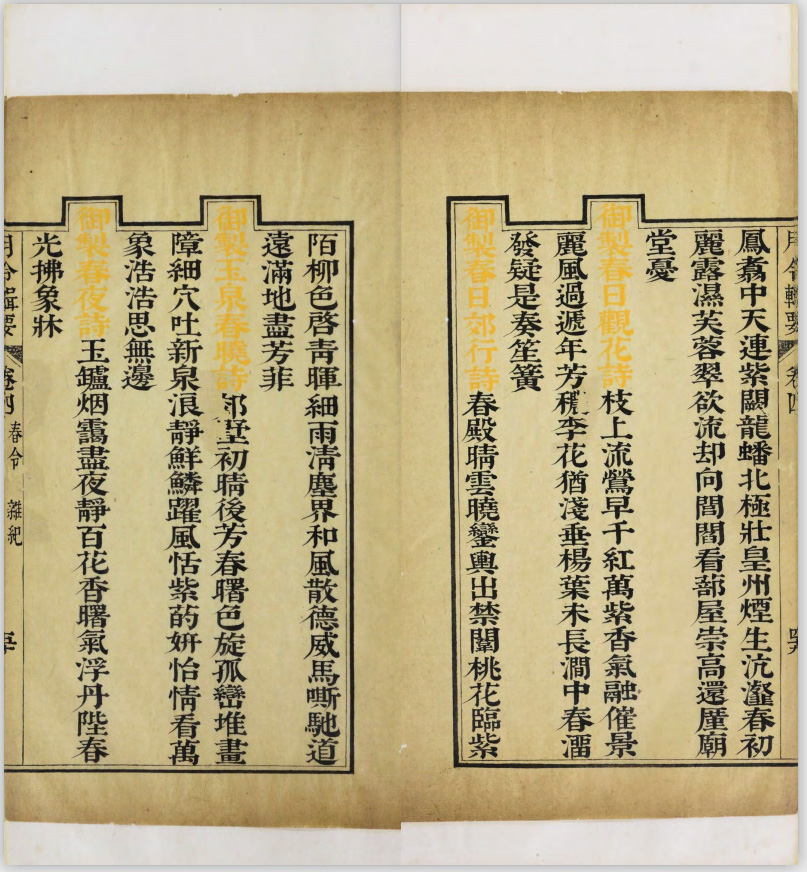 月令輯要 卷四
鳳翥中天連紫闕龍蟠北極壯皇州煙生沆瀣春初
麗露濕芙蓉翠欲流却向閭閻看蔀屋崇高還厪廟
堂憂
御製春日觀花詩枝上流鶯早千紅萬紫香氣融催景
麗風過遞年芳穠李花猶淺垂楊葉未長澗中春溜
發疑是奏笙簧
御製春日郊行詩春殿晴雲曉鑾輿出禁闈桃花臨紫
陌柳色啓青暉細雨清塵界和風散德威馬嘶馳道
遠滿地盡芳菲
御製玉泉春曉詩郊墅初晴後芳春曙色旋孤巒堆畫
障細穴吐新泉浪靜鮮鱗躍風恬紫菂妍怡情看萬
象浩浩思無邊
御製春夜詩玉罏烟靄盡夜靜百花香曙氣浮丹陛春
光拂象牀
月令輯要 卷四 春令 雜紀